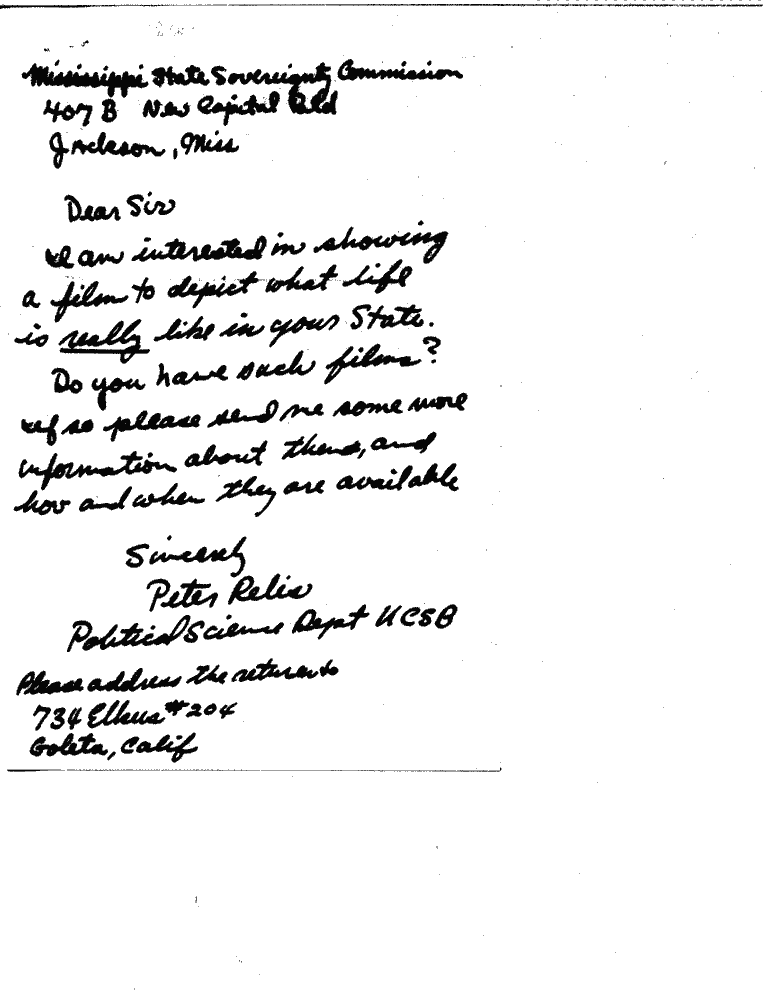 Mississippi State Sovereignty Commission
407 B New Capital Bld
Jackson, Miss
Dear Sir
I am interested in showing
a film to depict what life
is really like in your State.
Do you have such films?
If so please send me some more
information about them, and
how and when they are available
Sincerely
Peter Relis
Political Science Dept UCSB
Please address the return to
734 Elkus #204
Goleta, Calif